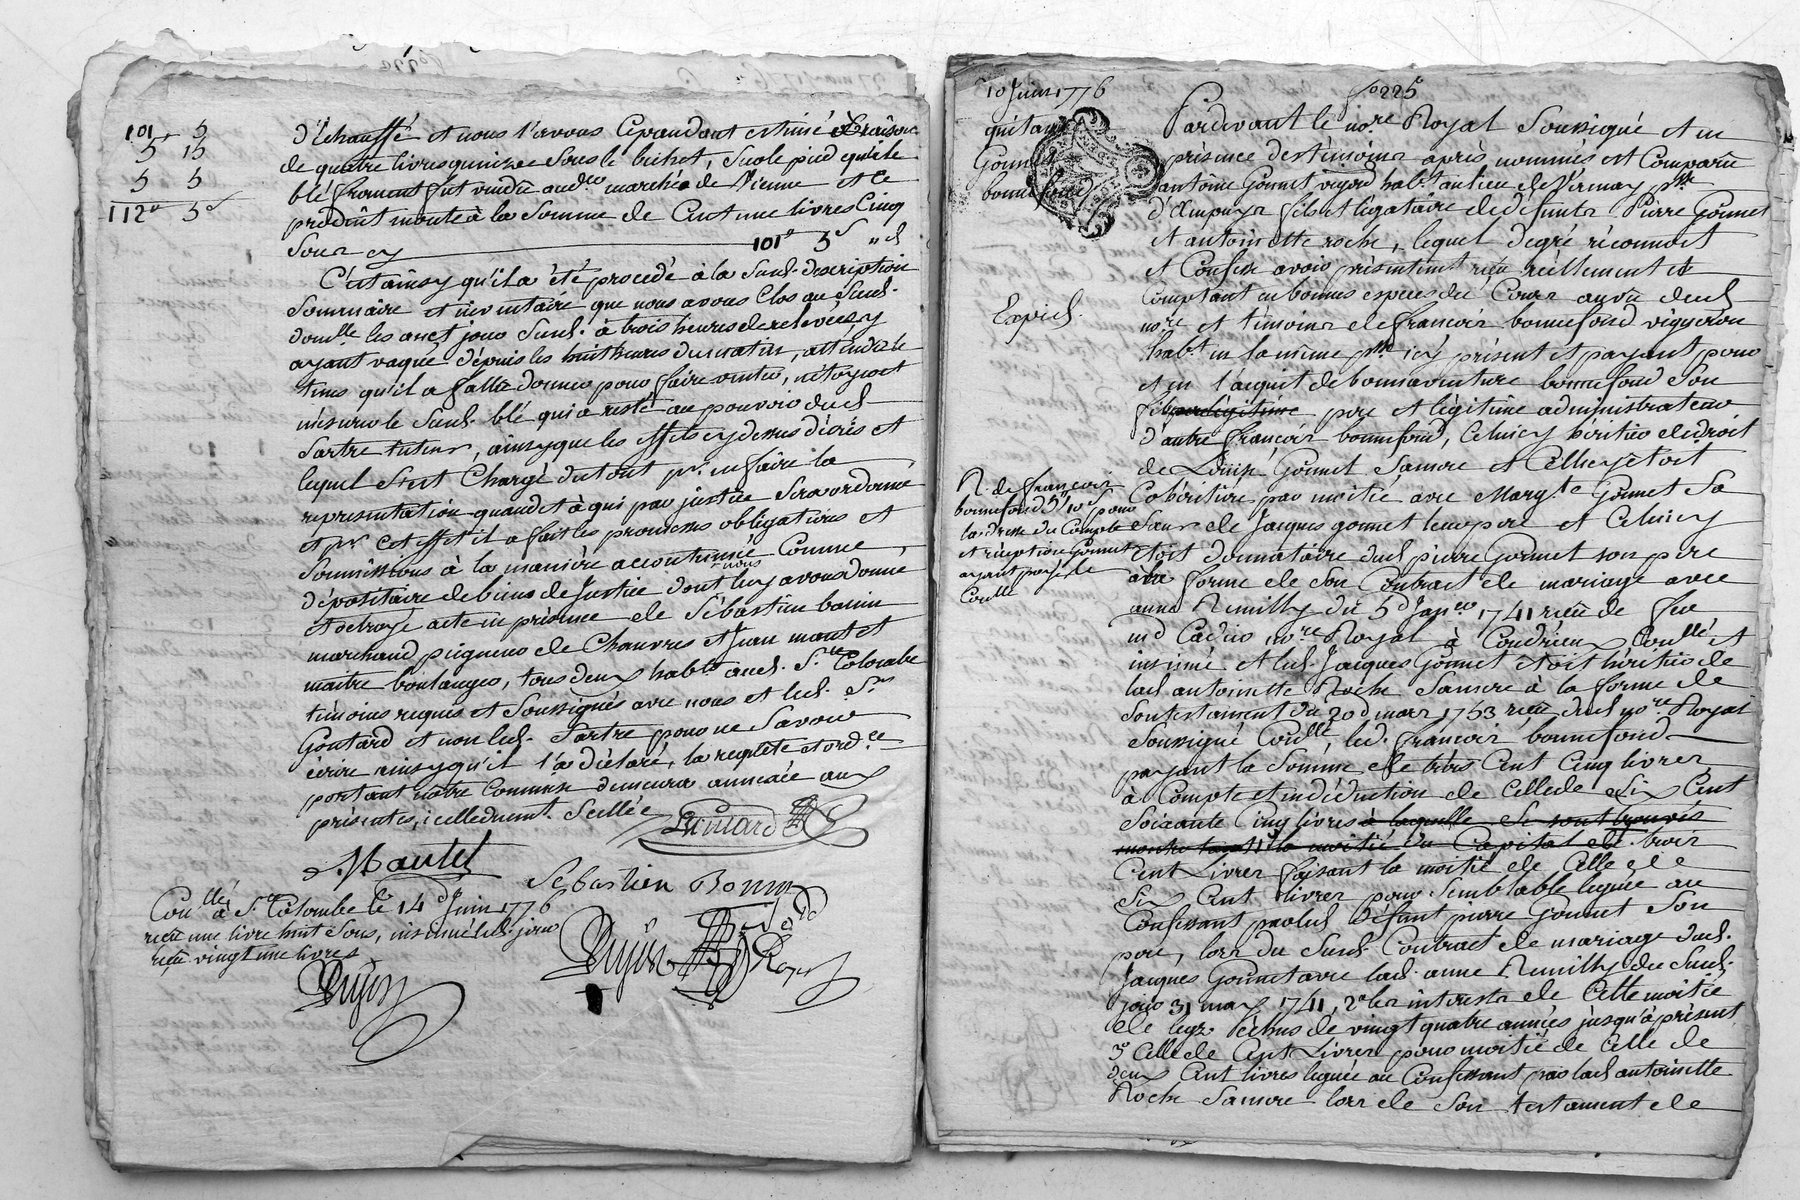 101 5
5 15
5 5
112# 5s
d'Echauffé et nous l'avons Cependant estimé a Raison
de quatre livres quinze Sous le bichet, Sur le pied qu'un tel
blé froment fut vendu aud. marché de Vienne et Ce
produit monte à la Somme de Cent une livres Cinq
Sous cy 101# 5s "d
C'est ainsy qu'il a été procedé à la Susd. description
Sommaire et inventaire que nous avons Clos au Susd.
domlle les an et jour Susd. à trois heures de relevée y
ayant vaqué depuis les huit heures du matin, attendu le
tems qu'il a fallu donner pour faire venter, nétoyer et
mésurer le Susd. blé qui a resté au pouvoir dud.
Sartre tuteur, ainsy que les effets cy dessus décrits et
lequel s'est Chargé du tout pr. en faire la
representation quand et à qui par justice Sera ordonné
et pr. Cet effet il a fait les promesses obligations et
Soumissions à la manière accoutumée Comme
dépositaire de biens de Justice dont luy avons donné
nous
et octroyé acte en présence de Sébastien bonin
marchand peigneur de Chanvres et Jean mantet
maitre boulanger, tous deux habts aud. Ste Colombe
témoins requis et Soussignés avec nous et led. Sr
Goutard et non led. Sartre pour ne Savoir
écrire ainsy qu'il l'a déclaré, la requête et ordce
portant notre Commise demeurera annexée aux
presentes, icelle duement Scellée
Goutard
Mantel
Sebastien Bonin
Conllé à Ste Colombe le 14 Juin 1776
reçu une livre huit Sous, insinué led. jour
reçu vingt une livres
Dujon
Dujon
10 Juin 1776
fo 225
quitance
Gonnet
bonnefond
Expied.
Pardevant le nore Royal Soussigné et en
présence des témoins après nommés est Comparu
antoine Gonnet habt au lieu de psse
d'Ampuis fils et légataire de défunts Pierre Gonnet
et antoinette roche, lequel de gré réconnoit
et Confesse avoir présentement reçu réellement et
Comptant en bonnes especes du Cours au vu dud
nore et témoins de françois bonnefond vigneron
habt en la même psse icy présent et payant pour
et en l'acquit de bonnaventure bonnefond Son
fils pere légitime pere et légitime administrateur
d'autre françois bonnefond, Celuicy héritier de droit
de Louise Gonnet Samere et Celle cy étoit
Cohéritière par moitié avec Margte Gonnet Sa
Sœur de Jacques gonnet leur pere et Celuicy
étoit donnataire dud pierre Gonnet son pere
à la forme de Son Contrat de mariage avec
anne Remilly du 5 1741 reçu de feu
md Cadier nore Royal à Condrieu Conllé et
insinué et led. Jacques Gonnet étoit héritier de
lad antoinette Roche Samere à la forme de
Son testament du 20 mars 1753 reçu dud nore Royal
Soussigné Conllé, led. françois bonnefond
payant la Somme de trois Cent Cinq livres
à Compte et en déduction de Celle de Six Cent
Soixante Cinq livres à laquelle Se sont trouvés
monter la moitié du Capital de trois
Cent Livres faisant la moitié de Celle de
Six Cent livres pour Semblable leguée au
Confessant par led défunt pierre Gonnet Son
pere, lors du Susd. Contract de mariage dud.
Jacques Gonnet avec lad. anne Remilly du Susd.
jour 31 may 1741, 2o les intérets de Cette moitié
de legs échus de vingt quatre années jusqu'à présent
3o Celle de Cent Livres pour moitié de Celle de
deux Cent livres leguée au Confessant par lad antoinette
Roche Samere lors de Son testament de
R de françois
bonnefond pour
la dresse du Compte
et réception Gonnet
ayant payé le
Conlle